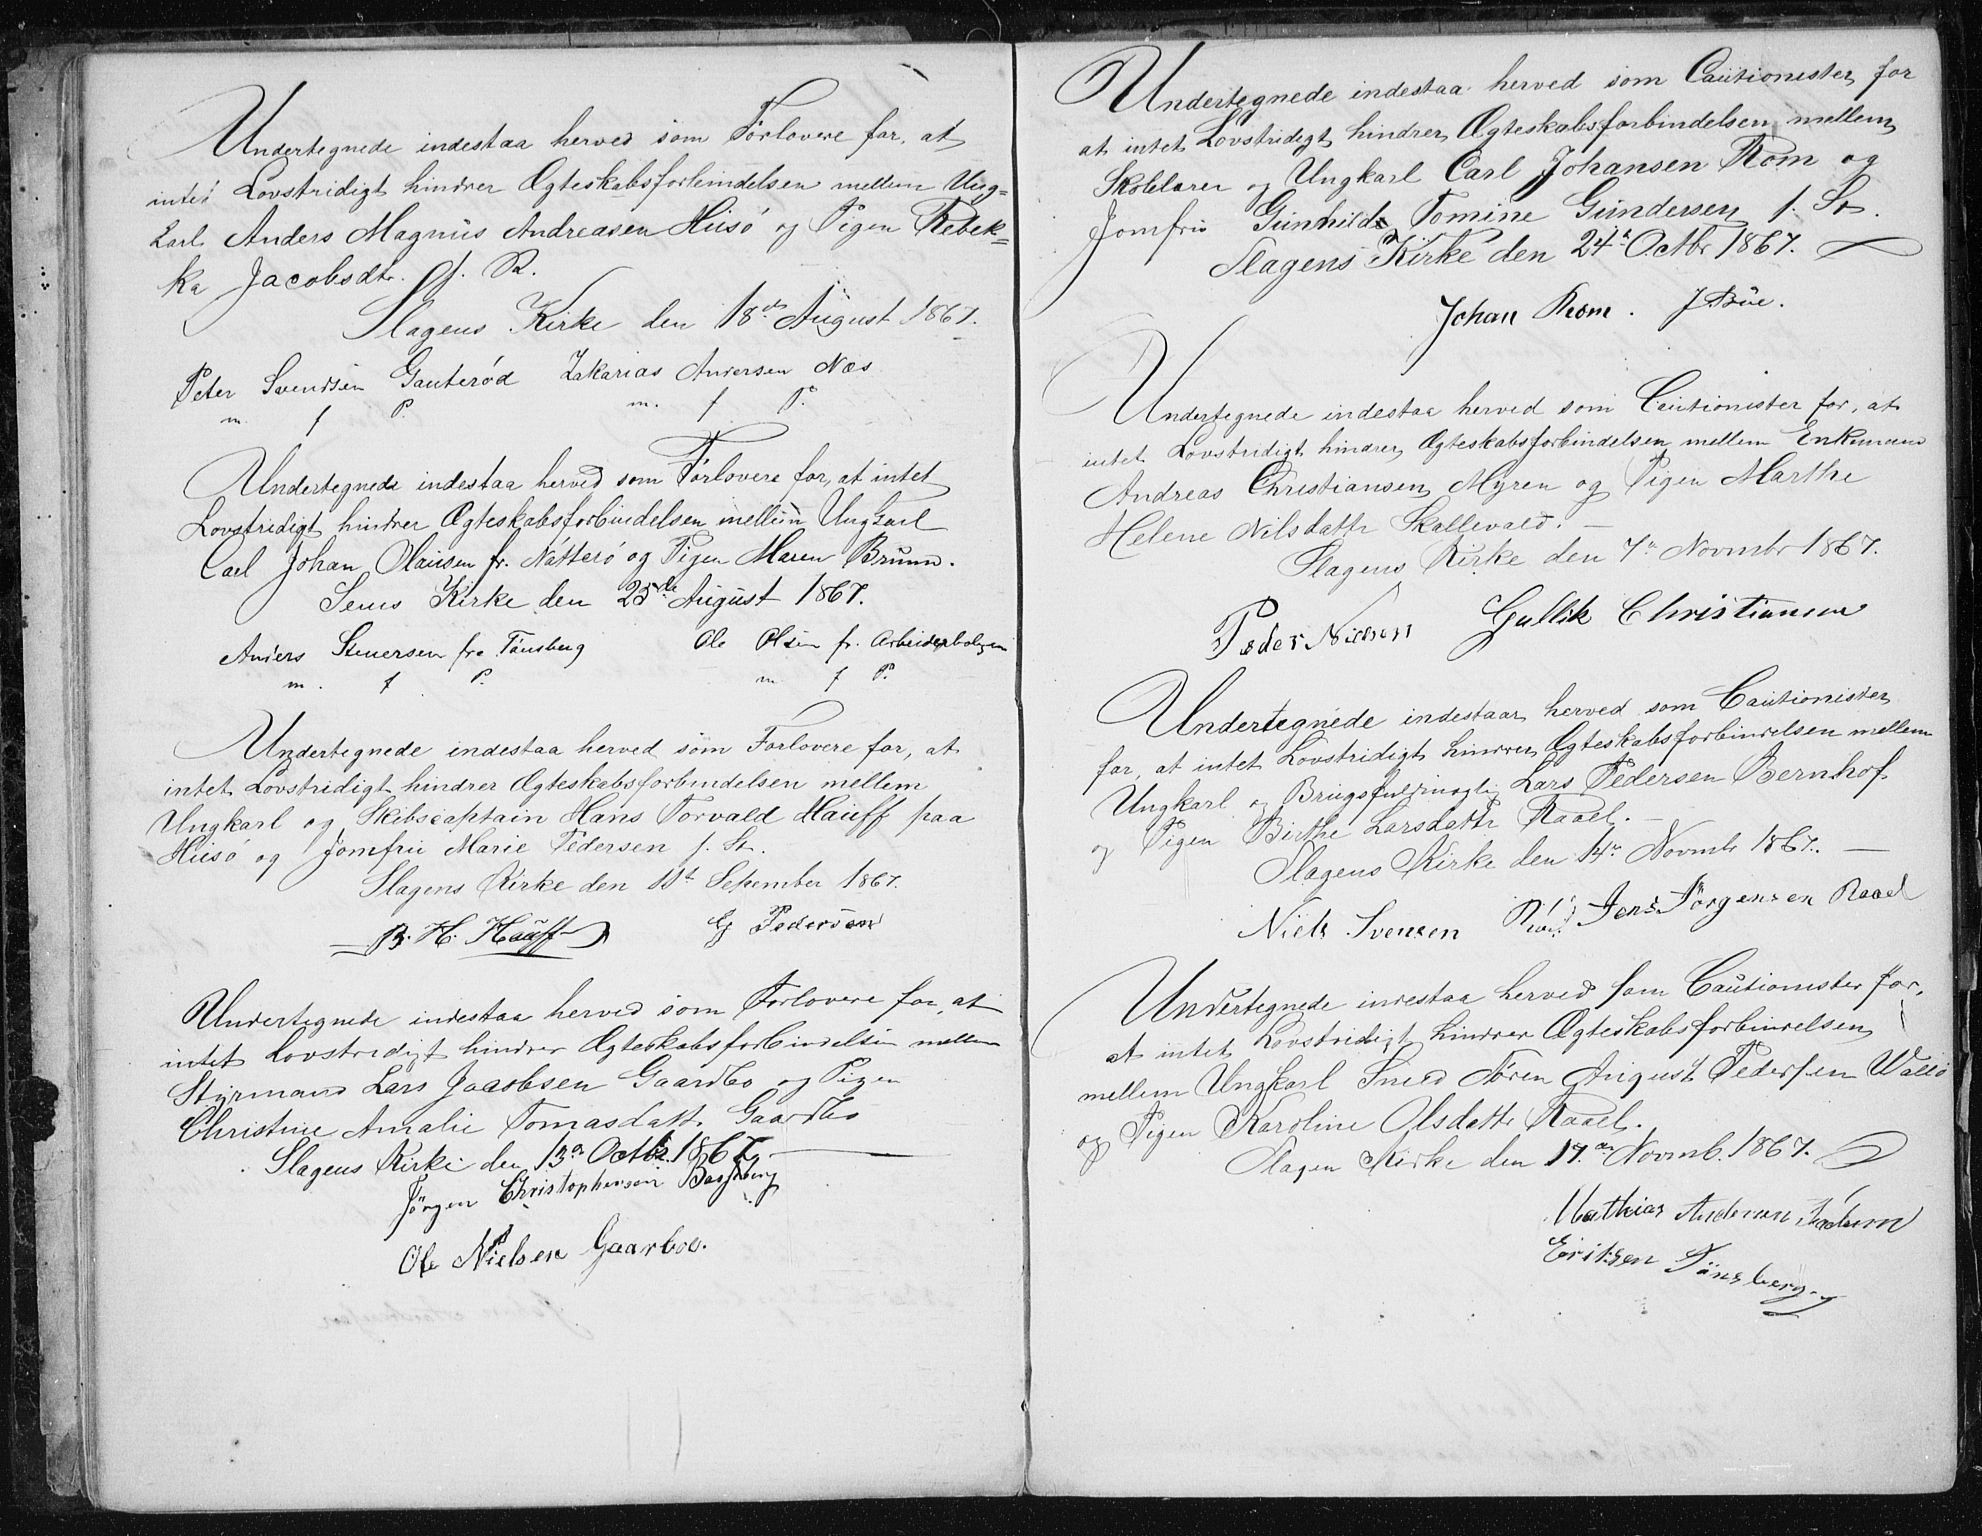 Undertegnede indestaa herved som Forlovere for, at
intet Lovstridigt hindrer Ægteskabsforbindelsen mellem Ung=
karl Anders Magnus Andreasen Husö og Pigen Rebek=
ka Jacobsdtr.
Slagens Kirke den 18de August 1867.
Peter Svendsen Gauterød Zakarias Andersen Næs
m. f P. m. f P.
Undertegnede indestaa herved som Forlovere for, at intet
Lovstridigt hindrer Ægteskabsforbindelsen mellem Ungkarl
Carl Johan Olausen fr. Nötterö og Pigen Maren Brunn.
Sems Kirke den 23de August 1867.
Anders Stenersen fra Tönsberg Ole Olsen fr. Arbeiderboligen
m. f P. m f P.
Undertegnede indestaa herved som Forlovere for, at
intet Lovstridigt hindrer Ægteskabsforbindelsen mellem
Ungkarl og Skibscaptain Hans Torvald Hauff paa
Husö og Jomfru Marie Pedersen f. St.
Slagens Kirke den 11te September 1867.
B. H. Hauff G Pedersen
Undertegnede indestaa herved som Forlovere for, at
intet Lovstridigt hindrer Ægteskabsforbindelsen mellem
Styrmand Lars Jacobsen Gaardbo og Pigen
Christine Amalie Tomasdatt. Gaardbo
Slagens Kirke den 13de Octbr. 1867.
Jörgen Christophersen Basberg
Ole Nielsen Gaarboe.
Undertegnede indestaa herved som Cautionister for
at intet Lovstridigt hindrer Ægteskabsforbindelsen mellem
Skolelærer og Ungkarl Carl Johansen Rom og
Jomfru Gunhild Tomine Gundersen f. St.
Slagens Kirke den 24de Octbr 1867.
Johan Rom. J Bue.
Undertegnede indestaa herved som Cautionister for, at
intet Lovstridigt hindrer Ægteskabsforbindelsen mellem Enkemand
Andreas Christiansen Myren og Pigen Marthe
Helene Nilsdattr Skallevald.
Slagens Kirke den 7de Novmbr 1867.
Peder Nielsen Gullik Christiansen
Undertegnede indestaar herved som Cautionister
for, at intet Lovstridigt hindrer Ægteskabsforbindelsen mellem
Ungkarl og Brugsfuldmægtig Lars Pedersen Bernhof
og Pigen Birthe Larsdattr Raael.
Slagens Kirke den 14de Novmb 1867.
Niels Svensen Jens Jörgensen Raael
Undertegnede indestaa herved som Cautionister for,
at intet Lovstridigt hindrer Ægteskabsforbindelsen
mellem Ungkarl Smed Sören August Pedersen Vallö
og Pigen Karoline Olsdattr Raael.
Slagen Kirke den 17de Novmb. 1867.
Mathias Andersen
Eriksen Tönsberg